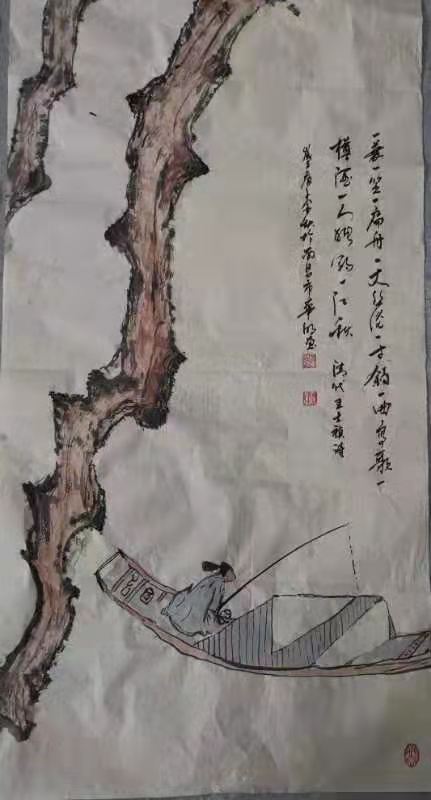 一蓑一笠一扁舟一丈丝纶一寸钩一曲高歌一
樽酒一人独钓一江秋 清代王士祯诗
秋於南昌市